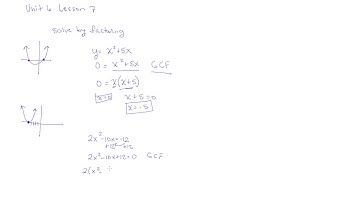 Unit 6 Lesson 7
solve by factoring
y = x² + 5x
0 = x² + 5x GCF
0 = x(x+5)
x=0 x+5=0
x=-5
2x²-10x=-12
+12 +12
2x²-10x+12=0 GCF
2(x²-